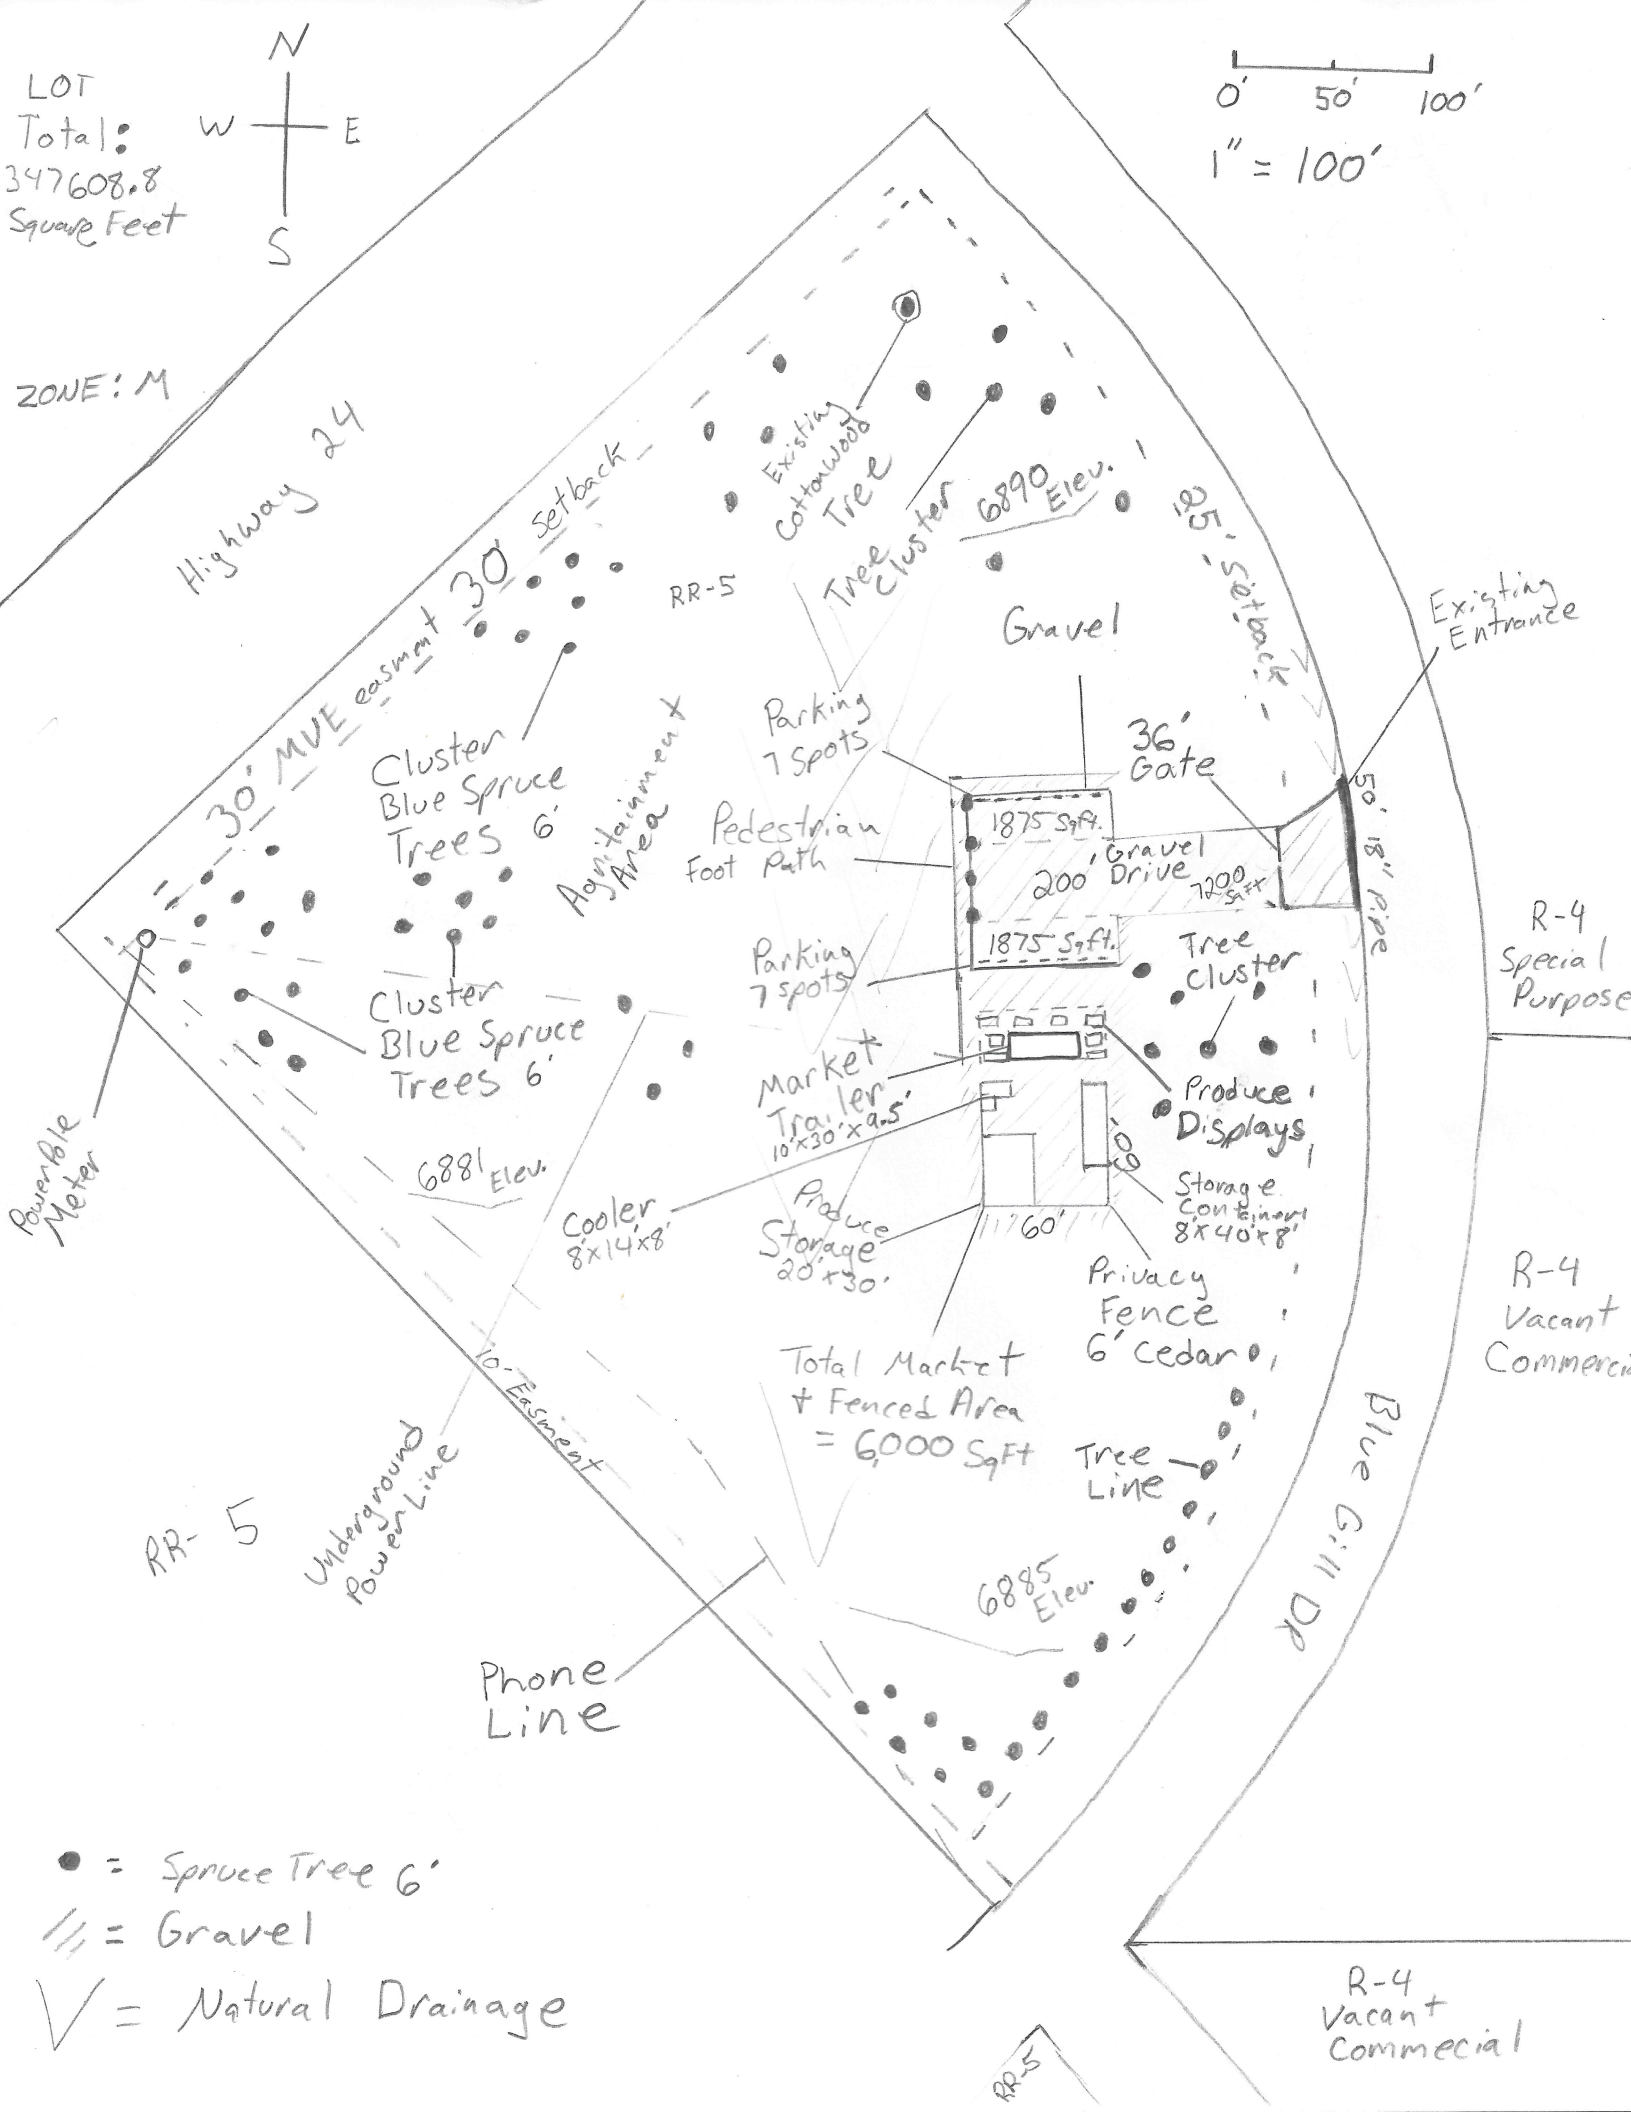 LOT
Total:
347608.8
Square Feet
N
W E
S
0' 50' 100'
1" = 100'
ZONE: M
Highway 24
30' MVE easmmt 30' setback
Existing
Cottonwood
Tree
Tree
Cluster
6890 Elev.
25' setback
RR-5
Gravel
Existing
Entrance
Parking
7 Spots
36'
Gate
Cluster
Blue Spruce
Trees 6'
Agritainment
Area
Pedestrian
Foot Path
1875 Sqft.
200' Gravel
Drive
7200
SqFt
1875 Sqft.
50' 18" Pipe
Parking
7 spots
Tree
Cluster
R-4
Special
Purpose
Cluster
Blue Spruce
Trees 6'
Market
Trailer
10'x30'x9.5'
Produce
Displays
PowerPole
Meter
6881 Elev.
Cooler
8'x14'x8'
Produce
Storage
20'x30'
60'
60'
Storage
Container
8'x40'x8'
Privacy
Fence
6' Cedar
R-4
Vacant
Commerci
Total Market
+ Fenced Area
= 6,000 SqFt
10' Easment
Tree
Line
Blue Gill DR
Underground
Power Line
RR-5
6885
Elev.
Phone
Line
● = Spruce Tree 6'
/// = Gravel
V = Natural Drainage
R-4
Vacant
Commecial
RR-5